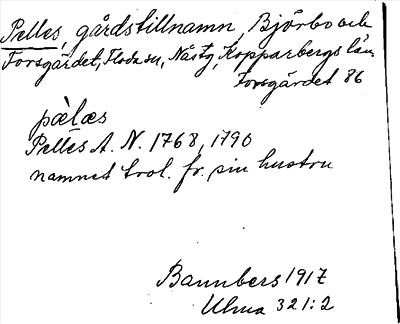 Pelles, gårdstillnamn, Björbo och
Forsgärdet, Floda sn, Nås tg, Kopparbergs län
Forsgärdet 86
pæ̀læs
Pelles A. N. 1768, 1790
namnet trol. fr. sin hustru
Bannbers 1917
Ulma 321:2